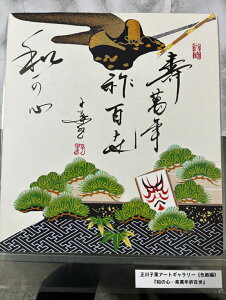 壽萬年
祚百世
和の心
正川子葉アートギャラリー《色紙編》
『和の心…壽萬年祚百世』